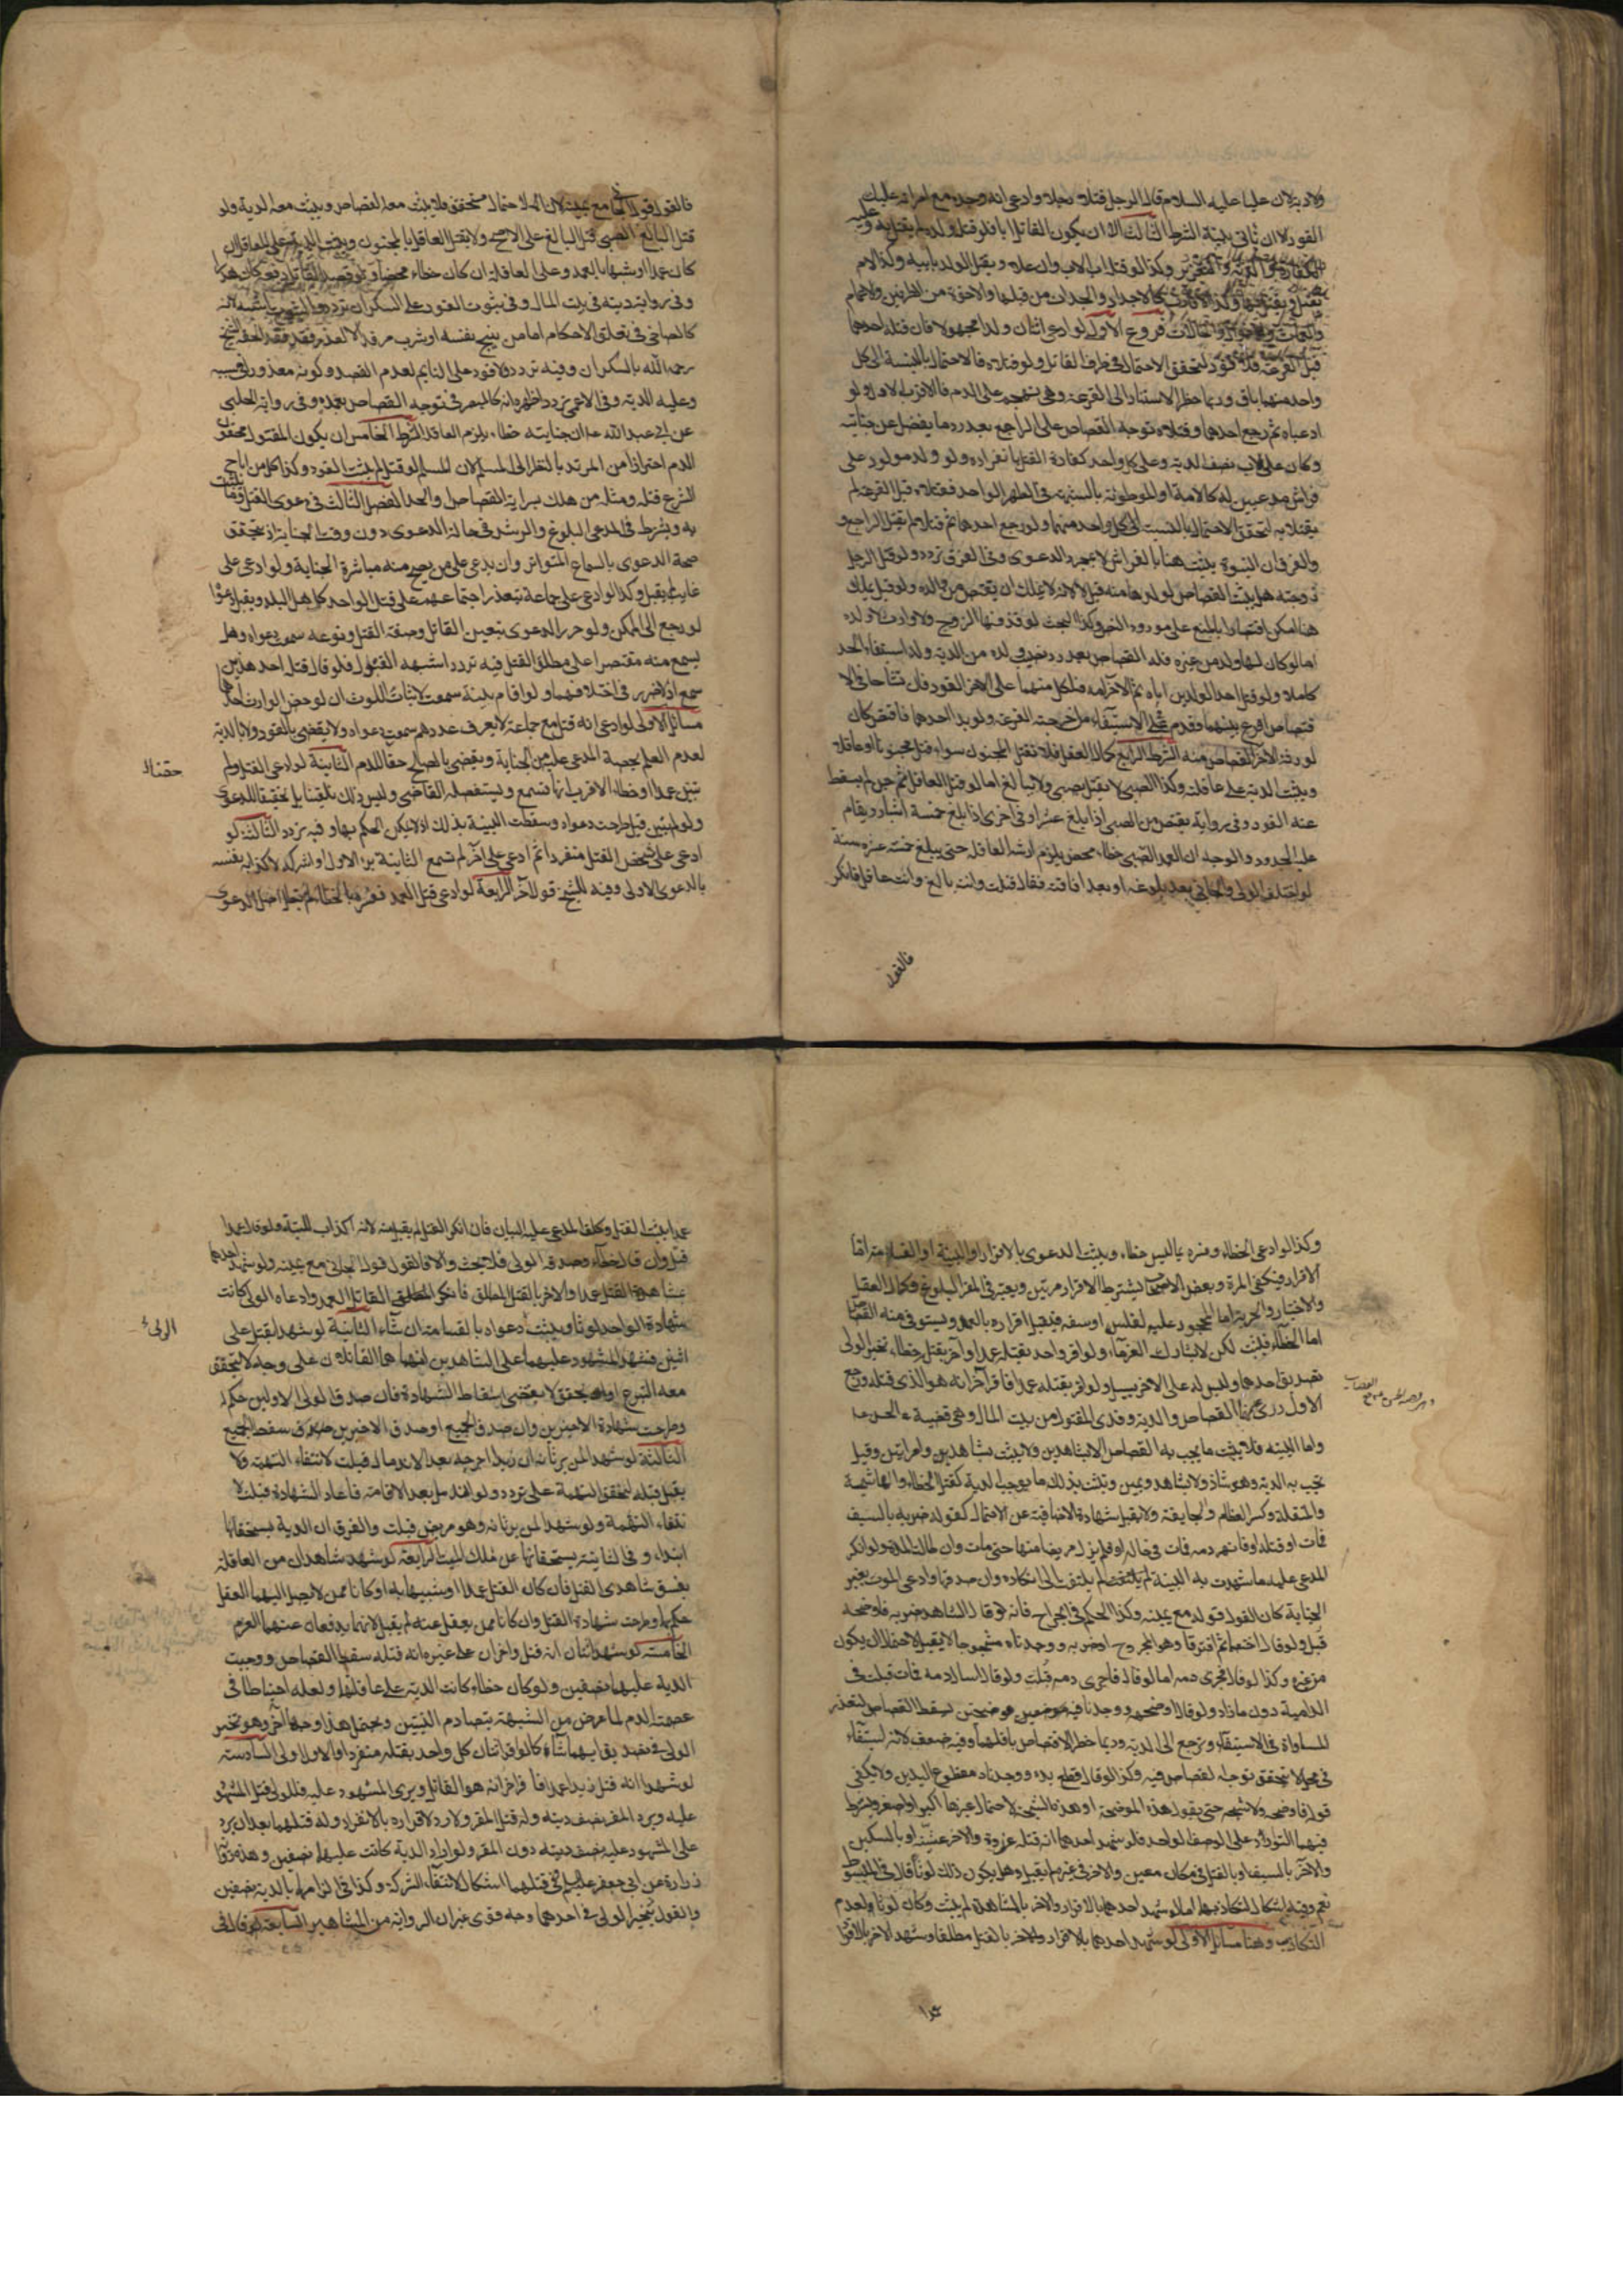 ولادية لان عليا عليه السلام قال لرجل قتل رجلا وادعى انه وجده مع امراته عليك
القود الا ان تاتي ببينة الشرط الثالث الا ان يكون القاتل ابا فلو قتل ولده لم يقتل به وعليه
الكفارة والدية والتعزير وكذا لو قتله اب الاب وان علا ويقتل الولد بابيه وكذا الام
تقتل به ويقتل بها وكذا الاقارب كالاجداد والجدات من قبلها والاخوة من الطرفين والاعمام
والعمات والاخوال والخالات فروع الاول لو ادعى اثنان ولدا مجهولا فان قتله احدهما
قبل القرعة فلا قود لتحقق الاحتمال في طرف القاتل ولو قتلاه فالاحتمال بالنسبة الى كل
واحد منهما باق وربما خطر الاستناد الى القرعة وهو تهجم على الدم فالاقرب الاول ولو
ادعياه ثم رجع احدهما وقتلاه توجه القصاص على الراجع بعد رد ما يفضل عن جنايته
وكان على الاب نصف الدية وعلى كل واحد كفارة القتل بانفراده ولو ولد مولود على
فراش مدعيين له كالامة او الموطوئة بالشبهة في الطهر الواحد فقتلاه قبل القرعة لم
يقتلا به لتحقق الاحتمال بالنسبة الى كل واحد منهما ولو رجع احدهما ثم قتلاه لم يقتل الراجع و
والفرق ان البنوة يثبت هنا بالفراش لا بمجرد الدعوى وفي الفرق تردد ولو قتل الرجل
زوجته هل يثبت القصاص لولدها منه قيل لا لانه لا يملك ان يقتص من والده ولو قيل يملك
هنا امكن اقتصارا بالمنع على مورد النص وكذا البحث لو قذفها الزوج ولا وارث الا ولده
اما لو كان لها ولد من غيره فله القصاص بعد رد نصيب ولده من الدية وله استيفاء الحد
كاملا ولو قتل احد الولدين اباه ثم الآخر امه فلكل منهما على الآخر القود فان تشاحا في الا
قتصاص اقرع بينهما وقدم في الاستيفاء من اخرجته القرعة ولو بدر احدهما فاقتص كان
لورثة الآخر القصاص منه الشرط الرابع كمال العقل فلا يقتل المجنون سواء قتل مجنونا او عاقلا
ويثبت الدية على عاقلته وكذا الصبي لا يقتل بصبي ولا ببالغ اما لو قتل العاقل ثم جن لم يسقط
عنه القود وفي رواية يقتص من الصبي اذا بلغ عشرا وفي اخرى اذا بلغ خمسة اشبار ويقام
عليه الحدود والوجه ان عمد الصبي خطاء محض يلزم ارشه العاقلة حتى يبلغ خمسة عشرة سنة
لو اختلف الولي والجاني بعد بلوغه او بعد افاقته فقال قتلت وانت بالغ وانت عاقل فانكر
فالقول
فالقول قول الجاني مع يمينه لان الاحتمال متحقق فلا يثبت معه القصاص ويثبت معه الدية ولو
قتل البالغ الصبي قتل البالغ على الاصح ولا يقتل العاقل بالمجنون ويثبت الدية على القاتل ان
كان عمدا او شبيها بالعمد وعلى العاقلة ان كان خطاء محضا ولو قصد القاتل دفعه كان هدرا
وفي رواية ديته في بيت المال وفي ثبوت القود على السكران تردد والثبوت اشبه لانه
كالصاحي في تعلق الاحكام اما من بنج نفسه او شرب مرقدا لا لعذر فقد الحقه الشيخ
رحمه الله بالسكران وفيه تردد ولا قود على النايم لعدم القصد وكونه معذورا في سببه
وعليه الدية وفي الاعمى تردد اظهره انه كالمبصر في توجه القصاص بعمده وفي رواية الحلبي
عن ابي عبد الله ع ان جنايته خطاء يلزم العاقلة الشرط الخامس ان يكون المقتول محقون
الدم احترازا من المرتد بالنظر الى المسلم لان المسلم لو قتله لم يثبت القود وكذا كل من اباح
الشرع قتله ومثله من هلك بسراية القصاص والحد الفصل الثالث في دعوى القتل وما يثبت
به ويشترط في المدعي البلوغ والرشد في حالة الدعوى دون وقت الجناية اذ يتحقق
صحة الدعوى بالسماع المتواتر وان يدعى على من يصح منه مباشرة الجناية ولو ادعى على
غايب لم يقبل وكذا لو ادعى على جماعة يتعذر اجتماعهم على قتل الواحد كاهل البلد ويقبل دعواه
لو رجع الى الممكن ولو حرر الدعوى بتعيين القاتل وصفة القتل ونوعه سمعت دعواه وهل
يسمع منه مقتصرا على مطلق القتل فيه تردد اشبهه القبول فلو قال قتله احد هذين
سمع اذ لا ضرر في احلافهما ولو اقام بينة سمعت لاثبات اللوث ان لو خص الوارث احدهما
مسائل الاولى لو ادعى انه قتل مع جماعة لا يعرف عددهم سمعت دعواه ولا يقضى بالقود ولا بالدية
لعدم العلم بحصة المدعى عليه من الجناية ويقضى بالصلح حقنا للدم الثانية لو ادعى القتل ولم
حقنا للـ
تبين عمدا او خطاء الاقرب انها تسمع ويستفصله القاضي وليس ذلك تلقينا بل تحقيقا للدعوى
ولو لم يبين قيل طرحت دعواه وسقطت البينة بذلك اذ لا يمكن الحكم بها وفيه تردد الثالثة لو
ادعى على شخص القتل منفردا ثم ادعى على آخر لم تسمع الثانية برا الاول او شركه لاكذابه نفسه
بالدعوى الاولى وفيه للشيخ قول اخر الرابعة لو ادعى قتل العمد ففسره بالخطاء لم يبطل اصل الدعوى
وكذا لو ادعى الخطاء وفسره بما ليس خطاء ويثبت الدعوى بالاقرار او البينة او القسامة اما
الاقرار فيكفي المرة وبعض الاصحاب يشترط الاقرار مرتين ويعتبر في المقر البلوغ وكمال العقل
والاختيار والحرية اما المحجور عليه لفلس او سفه فيقبل اقراره بالعمد ويستوفى منه القصاص
اما الخطاء فيثبت لكن لا يشارك الغرماء ولو اقر واحد بقتله عمدا وآخر بقتله خطاء تخير الولي
تصديق احدهما وليس له على الآخر سبيل ولو اقر بقتله عمدا فاقر آخر انه هو الذي قتله ورجع
الاول درئ عنهما القصاص والدية وودي المقتول من بيت المال وهي قضية الحسن ع
واما البينة فلا يثبت ما يجب به القصاص الا بشاهدين ولا يثبت بشاهدين وامراتين وقيل
يجب به الدية وهو شاذ ولا بشاهد ويمين ويثبت بذلك ما يوجب الدية كقتل الخطاء والهاشمة
والمنقلة وكسر العظام والجايفة ولا يقبل شهادة الا صافية عن الاحتمال كقوله ضربه بالسيف
فمات او قتله او فانهر دمه فمات في حاله او فلم يزل مريضا منها حتى مات وان طالت المدة ولو انكر
المدعى عليه ما شهدت به البينة لم يلتفت الى انكاره وان صدقها وادعى الموت بغير
الجناية كان القول قوله مع يمينه وكذا الحكم في الجراح فانه لو قال الشاهد ضربه فاوضحه
قبل ولو قال اختصما ثم افترقا وهو مجروح او ضربه ووجدناه مشجوجا لم يقبل لاحتمال ان يكون
من غيره وكذا لو قال فجرى دمه اما لو قال فاجرى دمه قبلت ولو قال اسال دمه فمات قبلت في
الدامية دون ما زاد ولو قال اوضحه ووجدنا فيه موضحتين سقط القصاص لتعذر
المساواة في الاستيفاء ويرجع الى الدية وربما خطر الاقتصاص باقلهما وفيه ضعف لانه استيفاء
في محل لا يتحقق توجه القصاص فيه وكذا لو قال قطع يده ووجدناه مقطوع اليدين ولا يكفي
قوله فاوضحه ولا شجه حتى يقول هذه الموضحة او هذه الشجة لاحتمال غيرها اكبر او اصغر ويشترط
فيهما التوارد على الوصف الواحد فلو شهد احدهما انه قتله غدوة والآخر عشية او بالسكين
والآخر بالسيف او بالقتل في مكان معين والآخر في غيره لم يقبل وهل يكون ذلك لوثا قال في المبسوط
نعم وفيه اشكال لتكاذبهما اما لو شهد احدهما بالاقرار والآخر بالمشاهدة لم يثبت وكان لوثا لعدم
التكاذب وهنا مسائل الاولى لو شهد احدهما بالاقرار والآخر بالقتل مطلقا وشهد الآخر بالاقرار
عمدا
عمدا يثبت القتل وكلف المدعى عليه البيان فان انكر القتل لم يقبل منه لانه اكذاب للبينة ولو قال عمدا
قتل وان قال خطاء وصدقه الولي فلا بحث والا فالقول قول الجاني مع يمينه ولو شهد احدهما
بمشاهدة القتل عمدا والآخر بالقتل المطلق فانكر القاتل العمد وادعاه الولي كانت
شهادة الواحد لوثا ويثبت دعواه بالقسامة ان شاء الثانية لو شهدا بقتل على
الولي
اثنين فشهد المشهود عليهما على الشاهدين انهما هما القاتلان على وجه لا يتحقق
معه التبرع او ان تحقق لا يقتضي اسقاط الشهادة فان صدق الولي الاولين حكم له
وطرحت شهادة الآخرين وان صدق الجميع او صدق الآخرين سقط الجميع
الثالثة لو شهدا لمن يرثانه ان زيدا جرحه بعد الاندمال قبلت لانتفاء التهمة ولا
يقبل قبله لتحقق التهمة على تردد ولو اندمل بعد الاقامة فاعاد الشهادة قبلت لا
نتفاء التهمة ولو شهدا لمن يرثانه وهو مريض قبلت والفرق ان الدية يستحقانها
ابتداء وفي الثانية يستحقانها عن ملك الميت الرابعة لو شهد شاهدان من العاقلة
بفسق شاهدي القتل فان كان القتل عمدا او شبيها به او كانا ممن لا يصل اليهما العقل
حكم بها وطرحت شهادة القتل وان كانا ممن يعقل عنه لم يقبل لانهما يدفعان عنهما الغرم
الخامسة لو شهد اثنان انه قتل واخران على غيره انه قتله سقط القصاص ووجبت
الدية عليهما نصفين ولو كان خطاء كانت الدية على عاقلتهما ولعله احتياطا في
عصمة الدم لما عرض من الشبهة بتصادم البينتين ويحتمل هذا وجها آخر وهو تخيير
الولي في تصديق ايهما شاء كما لو اقر اثنان كل واحد بقتله منفردا والاول اولى السادسة
لو شهدا انه قتل زيدا عمدا فاقر آخر انه هو القاتل وبرئ المشهود عليه فللولي قتل المشهود
عليه ويرد المقر نصف ديته وله قتل المقر ولا رد لاقراره بالانفراد وله قتلهما بعد ان يرد
على المشهود عليه نصف ديته دون المقر ولو اراد الدية كانت عليهما نصفين وهذه رواية
زرارة عن ابي جعفر عليه السلم وفي قتلهما اشكال لانتفاء الشركة وكذا في الزامهما بالدية نصفين
والقول بتخيير الولي في احدهما وجه قوي غير ان الرواية من المشاهير السابعة لو قال في